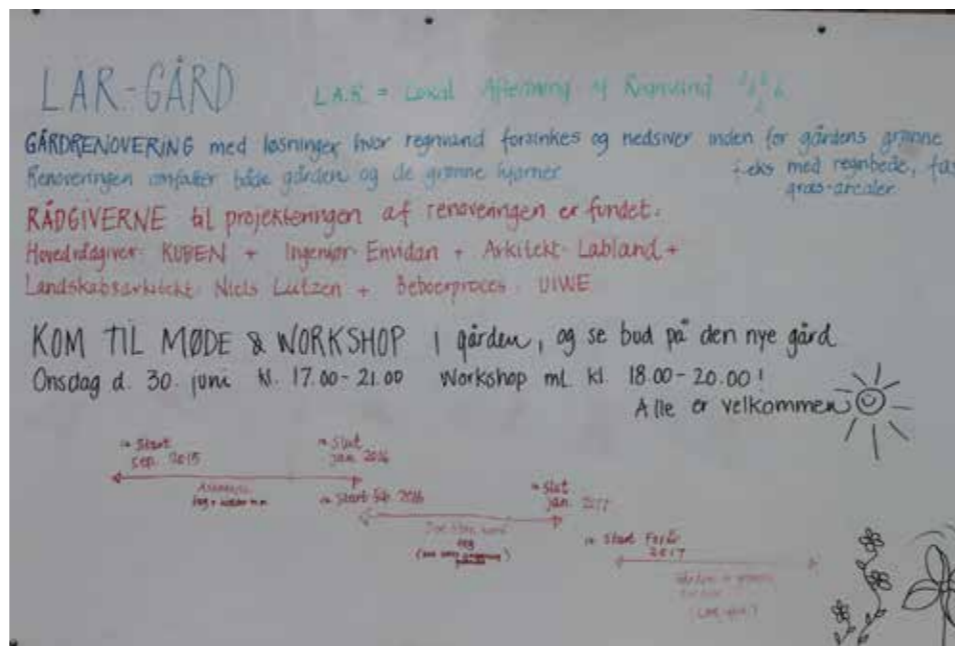 LAR-GÅRD
L.A.R = Lokal Afledning af Regnvand
GÅRDRENOVERING med løsninger hvor regnvand forsinkes og nedsiver inden for gårdens grønne
f.eks med regnbede,
græs-arealer
Renoveringen omfatter både gården og de grønne hjørner
RÅDGIVERNE til projekteringen af renoveringen er fundet.
Hovedrådgiver: KUBEN + Ingeniør: Envidan + Arkitekt: Labland +
Landskabsarkitekt: Niels Lützen + Beboerproces: UIWE
KOM TIL MØDE & WORKSHOP I gården, og se bud på den nye gård
Onsdag d. 30. juni kl. 17.00-21.00 Workshop ml. kl. 18.00-20.00!
Alle er velkommen
Start
sep. 2015
Slut
jan. 2016
Start feb. 2016
Slut
jan. 2017
Start Forår
2017